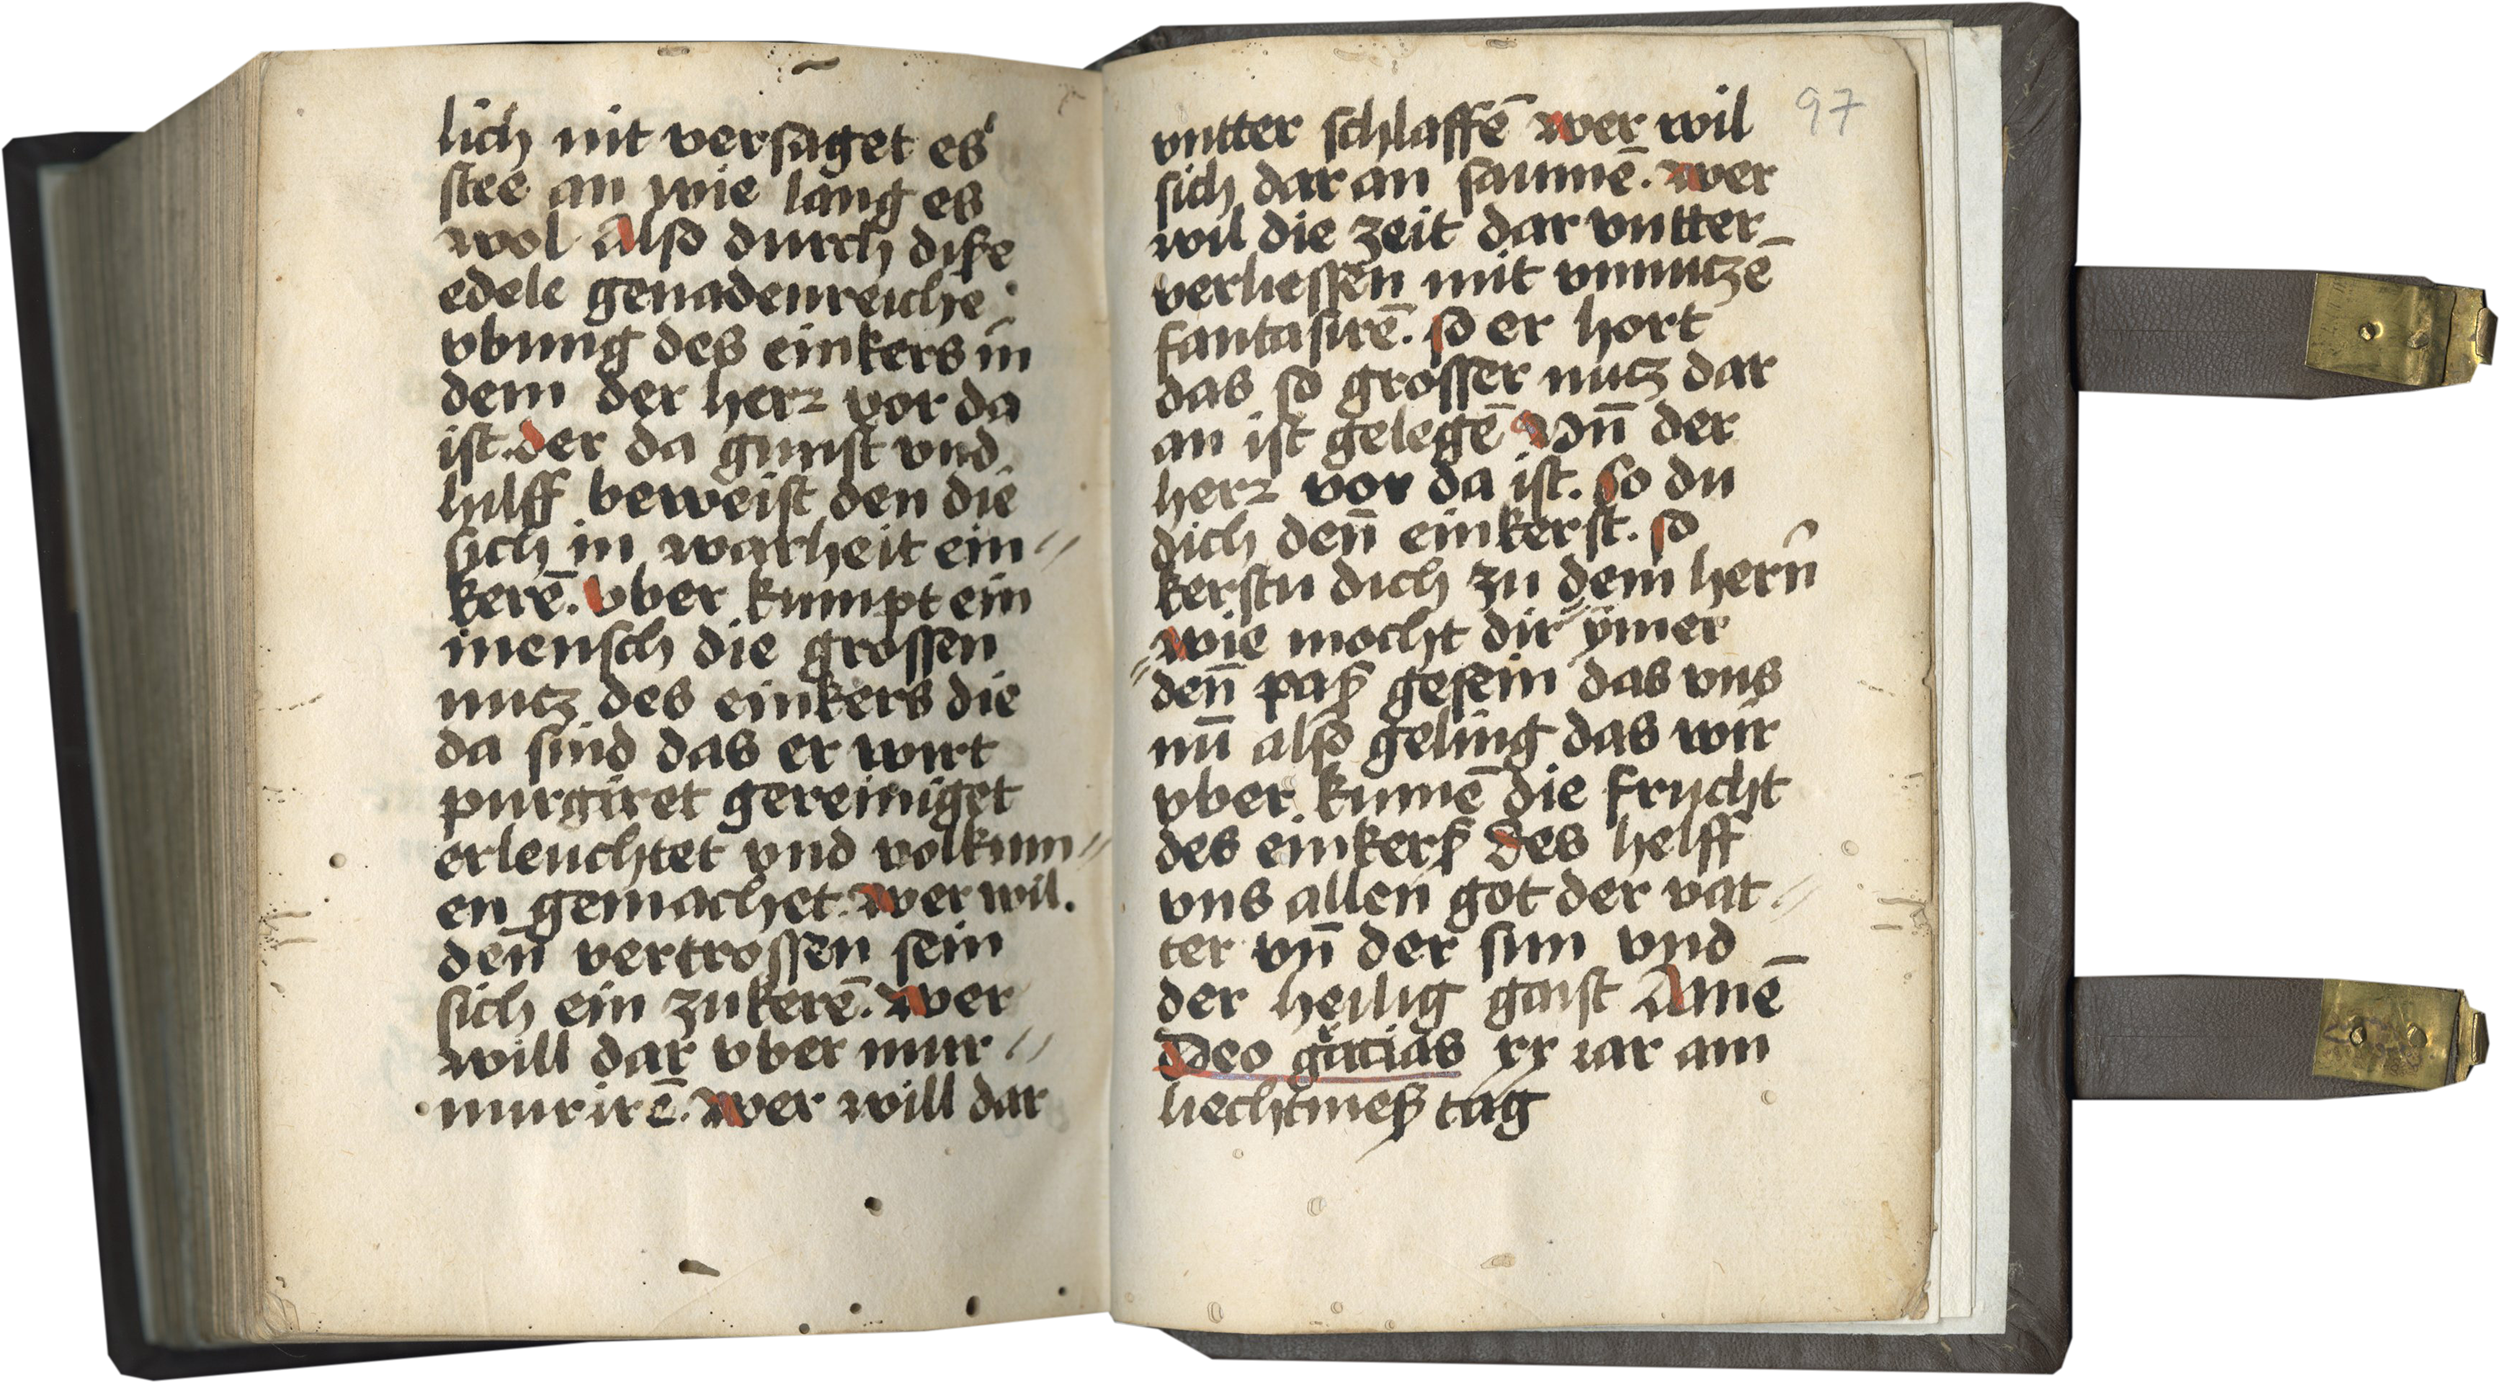 lich nit versaget es
stee an wie lang es
wol Also durch dise
edele genadenreiche
vbung des einkers in
dem der herr vor da
ist. der da gunst vnd
hilff beweist den die
sich in warheit ein〃
kerē. vber kumpt ein
mensch die grossen
nutz des einkers die
da sind das er wirt
purgiret gereiniget
erleuchtet vnd volkum〃
en gemachet. wer wil.
den̄ vertrossen sein
sich ein zukerē. wer
will dar vber mur〃
murirē. wer will dar
97
vntter schlaffē wer wil
sich dar an saumē. wer
wil die zeit dar vntter
verliessen mit vnnutzē
fantasirē. so er hort
das so grosser nutz dar
an ist gelegē Vn̄ der
herr vor da ist. So du
dich den̄ einkerst. so
kerstu dich zu dem hern̄
wie mocht dir ymer
〃den̄ paß gesein das vns
nu̅ also geling das wir
vber kumē die frucht
des einkerß Des helff
vns allen got der vat〃
ter vn̄ der sun vnd
der heilig gaist Amē
Deo gracias xx iar am
liechtmeß tag